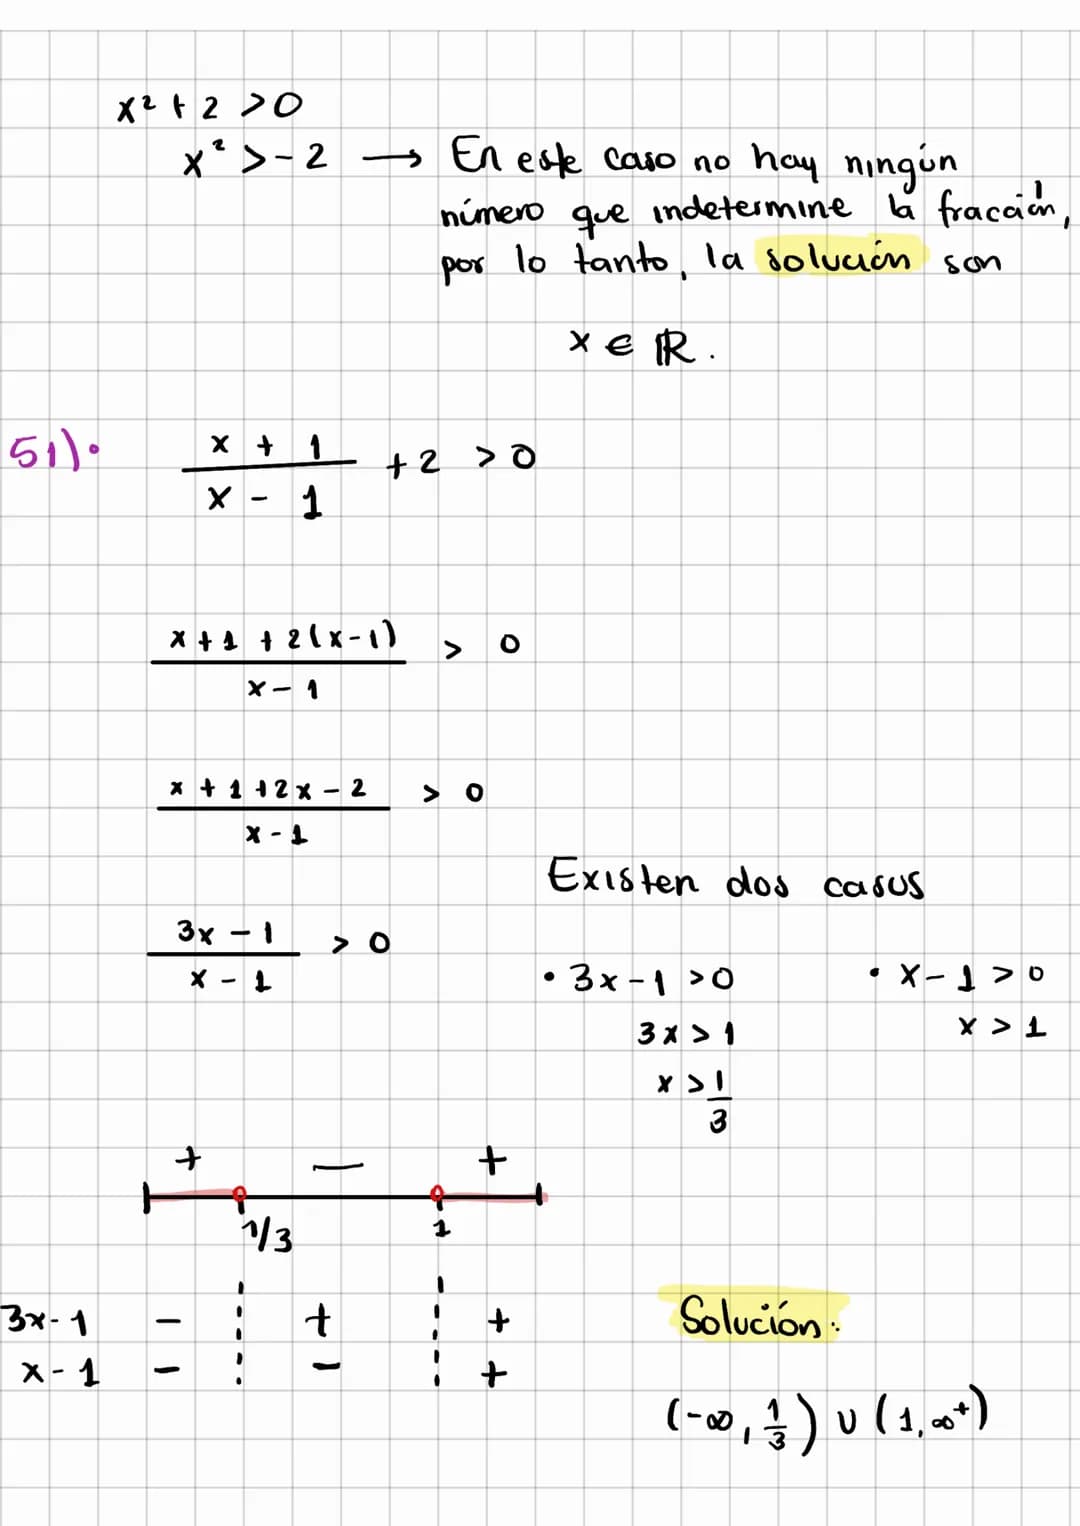 x² + 2 > 0
x² > - 2 → En este caso no hay ningún
número que indetermine la fracción,
por lo tanto, la solución son
x ∈ ℝ.
51).
x + 1
x - 1
+ 2 > 0
x + 1 + 2(x-1)
x - 1
> 0
x + 1 + 2x - 2
x - 1
> 0
Existen dos casos
3x - 1
x - 1
> 0
• 3x - 1 > 0
3x > 1
x > 1/3
• x - 1 > 0
x > 1
+ − +
1/3 1
3x-1 - + +
x-1 - - +
Solución:
(-∞, 1/3) ∪ (1, ∞⁺)